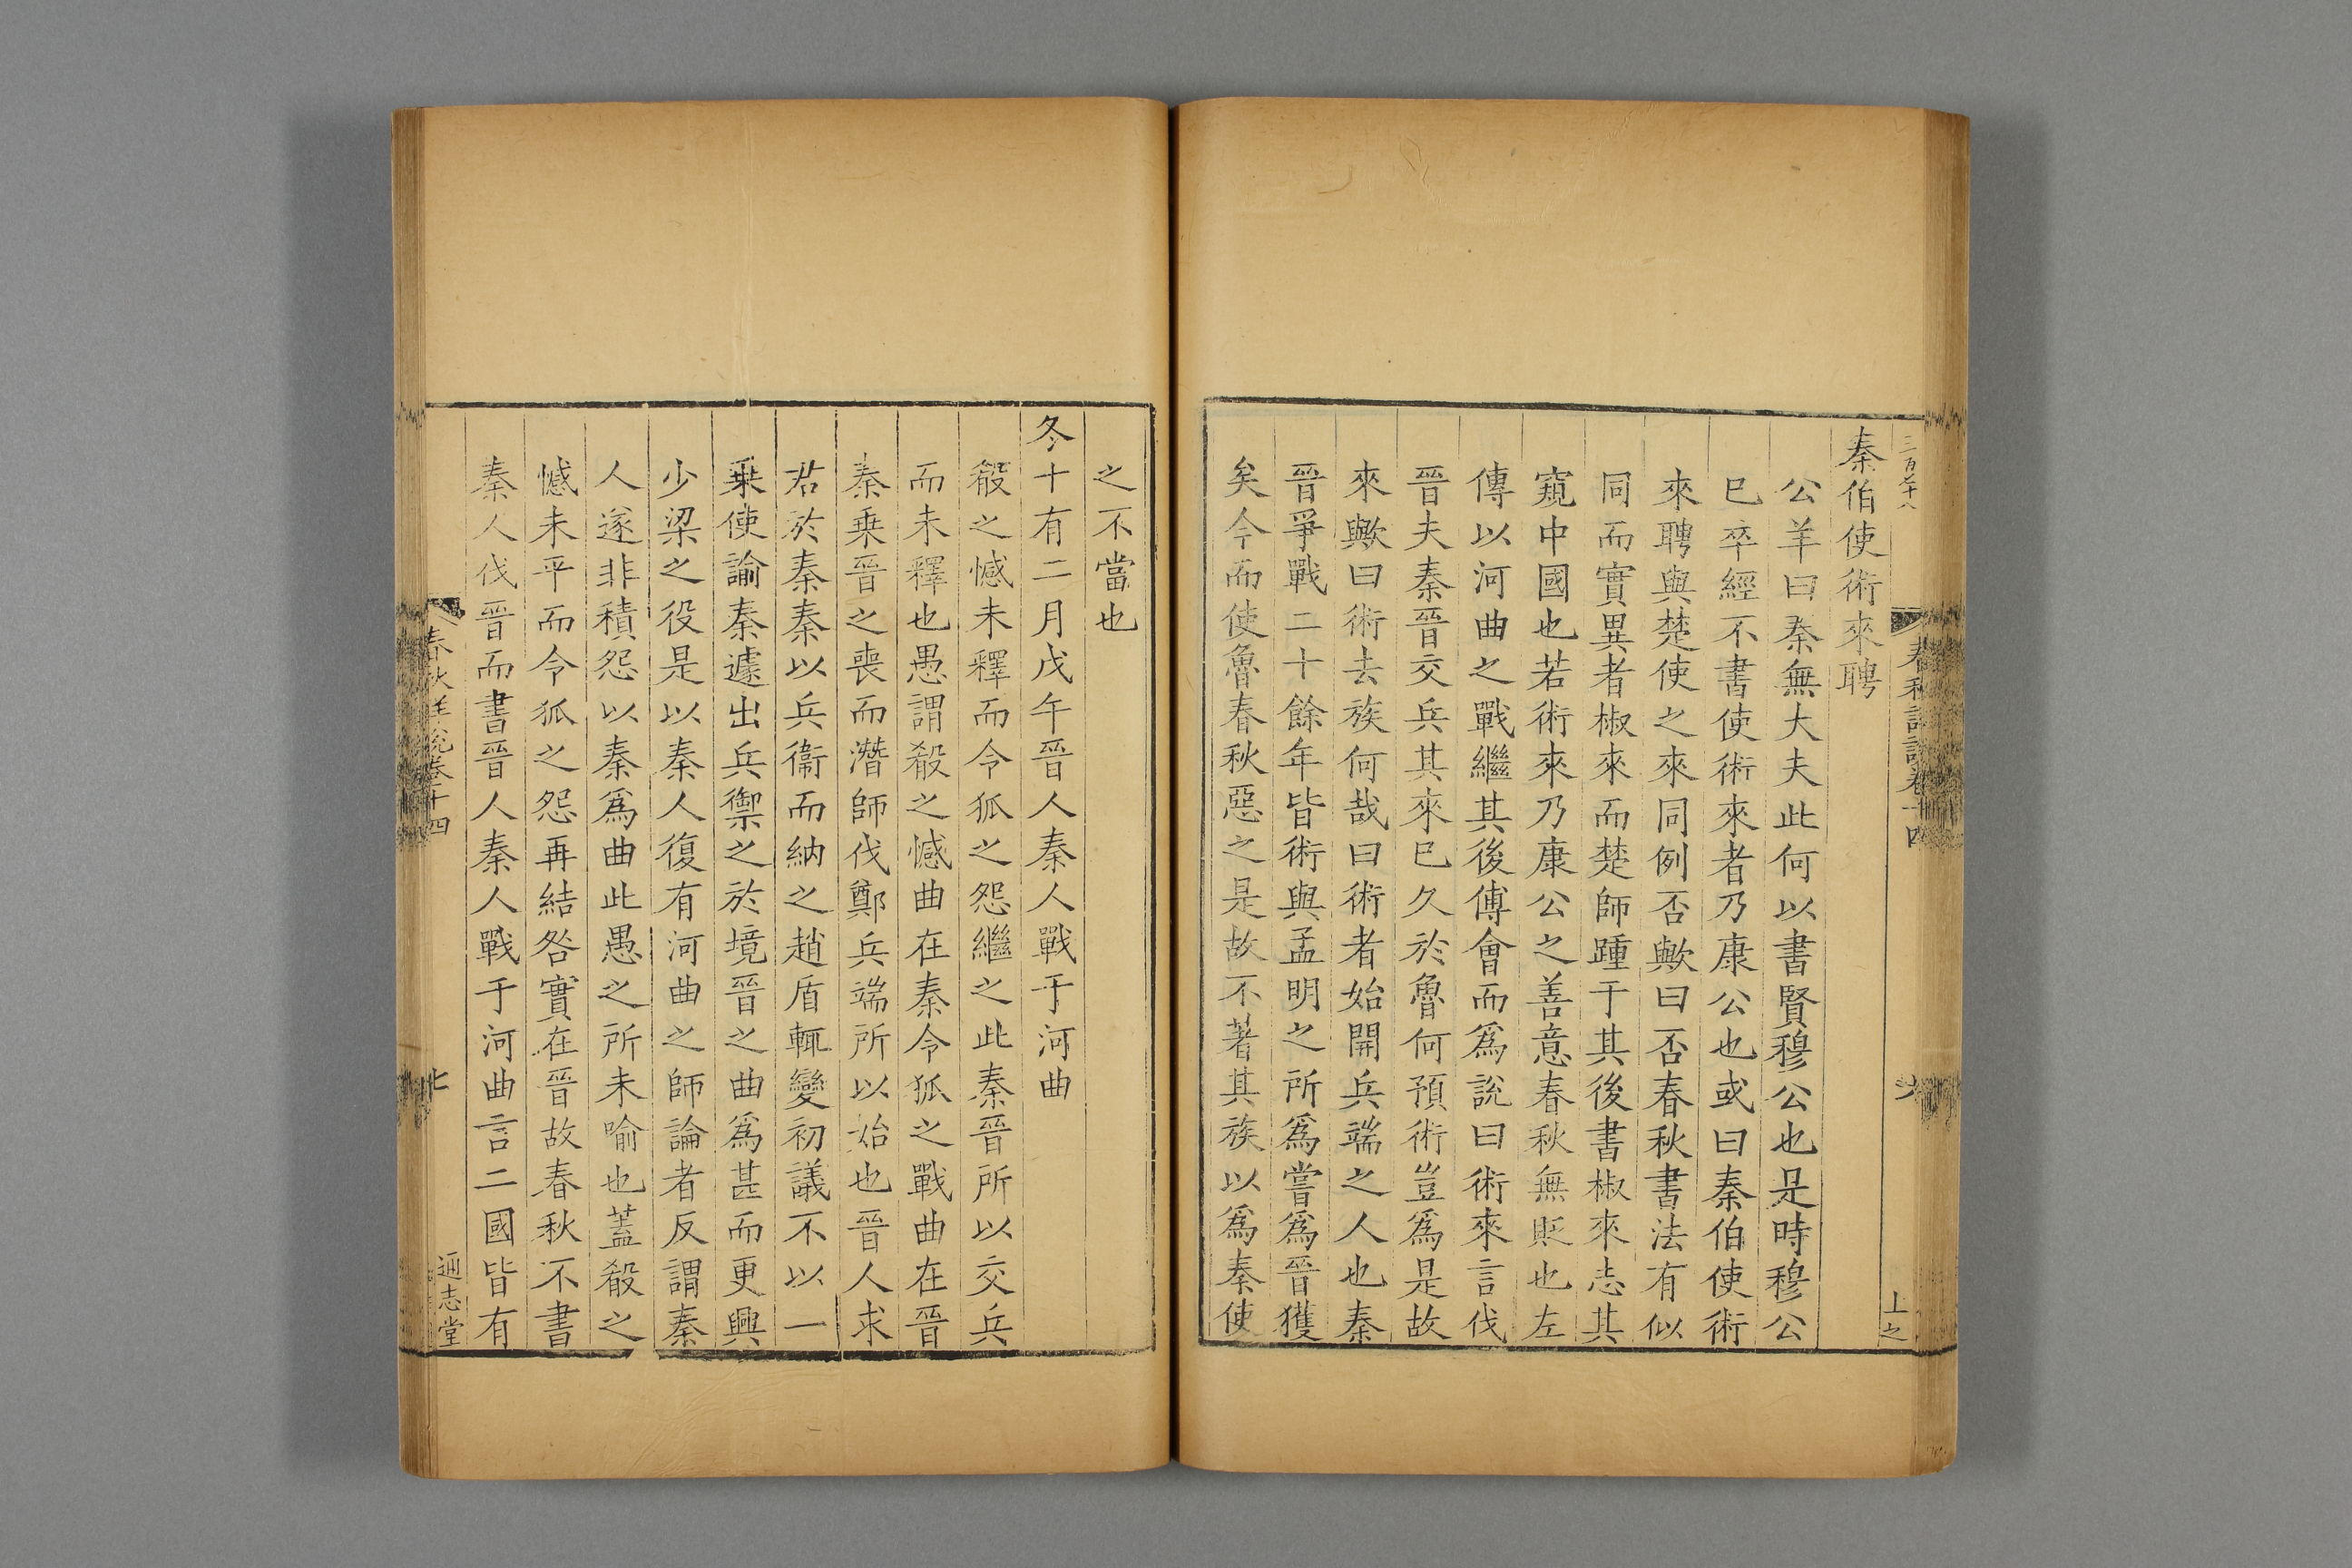 三百七十八
春秋詳說卷十四
上之
秦伯使術來聘
公羊曰秦無大夫此何以書賢穆公也是時穆公
已卒經不書使術來者乃康公也或曰秦伯使術
來聘與楚使之來同例否歟曰否春秋書法有似
同而實異者椒來而楚師踵于其後書椒來志其
窺中國也若術來乃康公之善意春秋無貶也左
傳以河曲之戰繼其後傅會而爲說曰術來言伐
晉夫秦晉交兵其來已久於魯何預術豈爲是故
來歟曰術去族何哉曰術者始開兵端之人也秦
晉爭戰二十餘年皆術與孟明之所爲嘗爲晉獲
矣今而使魯春秋惡之是故不著其族以爲秦使
之不當也
冬十有二月戊午晉人秦人戰于河曲
殽之憾未釋而令狐之怨繼之此秦晉所以交兵
而未釋也愚謂殽之憾曲在秦令狐之戰曲在晉
秦乗晉之喪而潛師伐鄭兵端所以始也晉人求
君於秦秦以兵衞而納之趙盾輒變初議不以一
乗使諭秦遽出兵禦之於境晉之曲爲甚而更興
少梁之役是以秦人復有河曲之師論者反謂秦
人遂非積怨以秦爲曲此愚之所未喻也蓋殽之
憾未平而令狐之怨再結咎實在晉故春秋不書
秦人伐晉而書晉人秦人戰于河曲言二國皆有
春秋詳說卷十四
七
通志堂